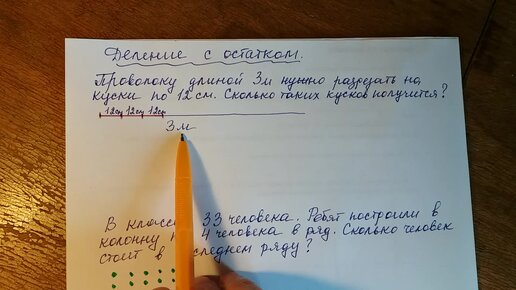 Деление с остатком.
Проволоку длиной 3м нужно разрезать на
куски по 12 см. Сколько таких кусков получится?
12см 12см 12см
3 м
В класс 33 человека. Ребят построили в
колонну 4 человека в ряд. Сколько человек
стоит в последнем ряду?